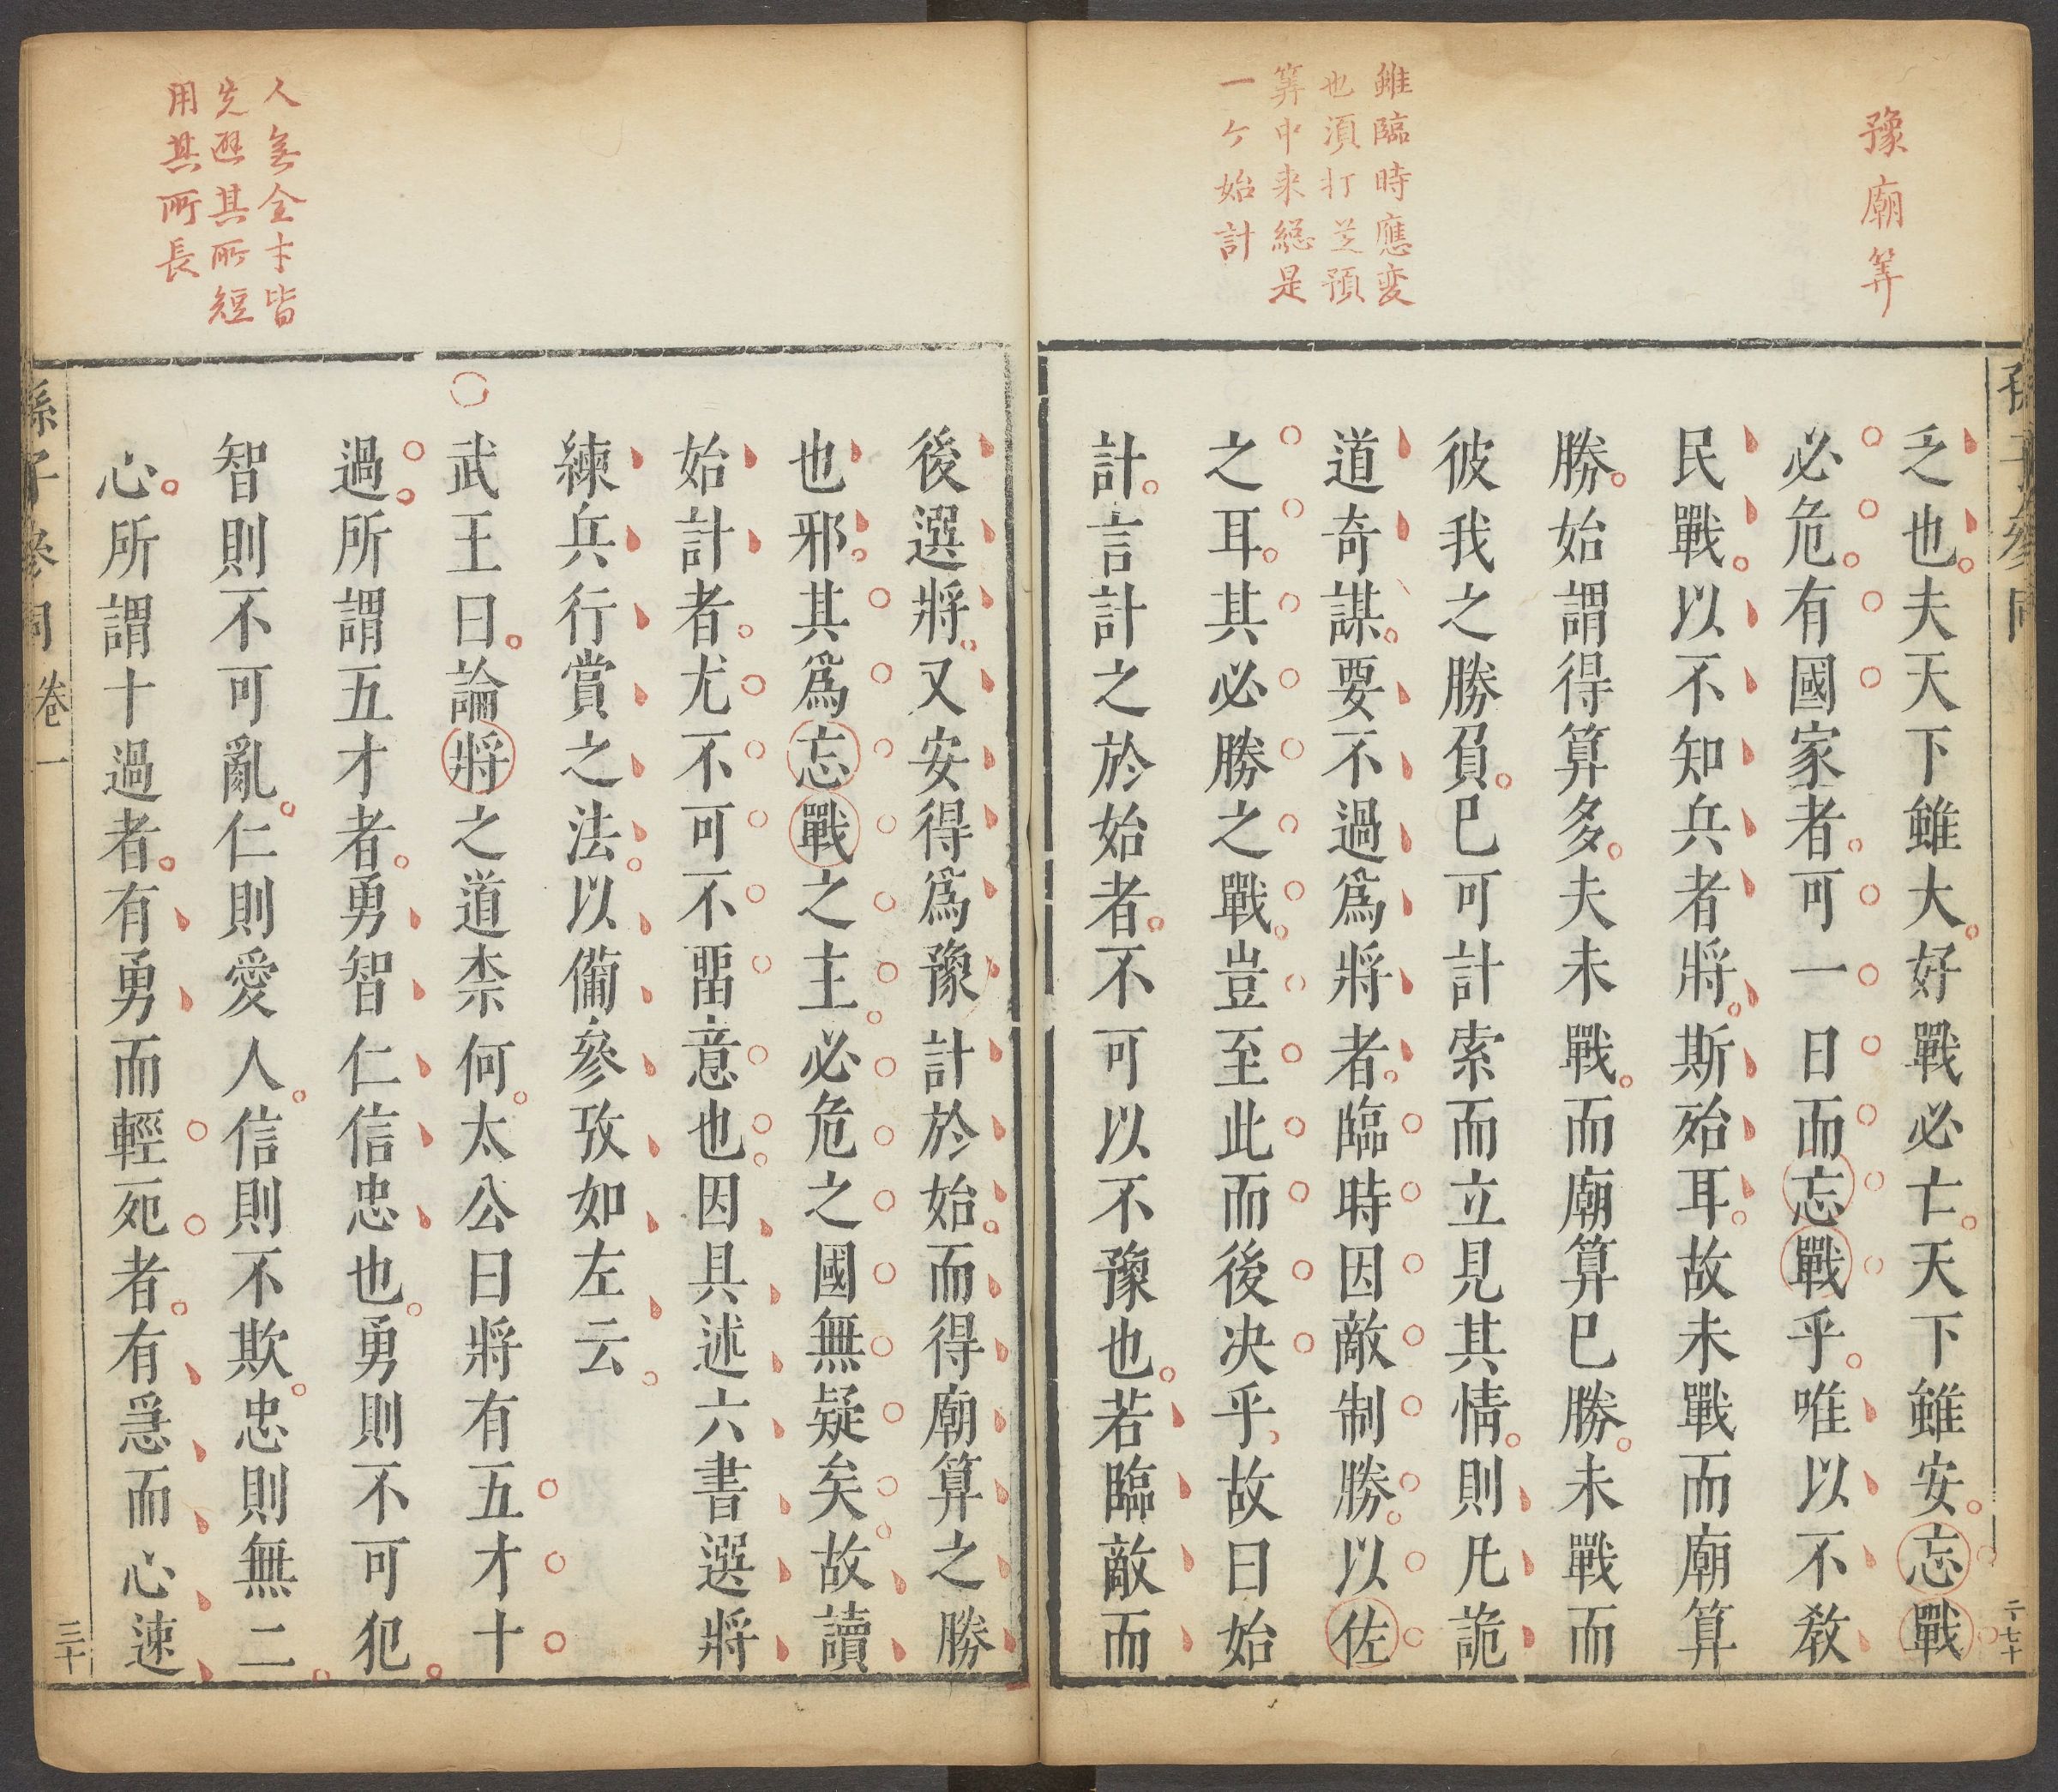 豫廟筭
雖臨時應变
也須打芝預
筭中来緫是
一ケ始計
乏也夫天下雖大好戰必亡天下雖安忘戰
必危有國家者可一日而忘戰乎唯以不敎
民戰以不知兵者將斯殆耳故未戰而廟算
勝始謂得算多夫未戰而廟算巳勝未戰而
彼我之勝負巳可計索而立見其情則凡詭
道奇謀要不過爲將者臨時因敵制勝以佐
之耳其必勝之戰豈至此而後决乎故曰始
計言計之於始者不可以不豫也若臨敵而
人無全才皆
先避其所短
用其所長
後選將又安得爲豫計於始而得廟算之勝
也邪其爲忘戰之主必危之國無疑矣故讀
始計者尤不可不畱意也因具述六書選將
練兵行賞之法以備參攷如左云
武王曰論將之道柰何太公曰將有五才十
過所謂五才者勇智仁信忠也勇則不可犯
智則不可亂仁則愛人信則不欺忠則無二
心所謂十過者有勇而輕死者有急而心速
孫子參同 卷一
三十